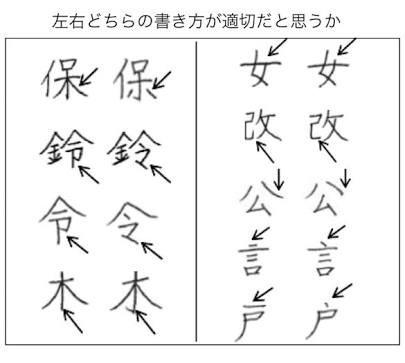 左右どちらの書き方が適切だと思うか
保 保
鈴 鈴
令 令
木 木
女 女
改 改
公 公
言 言
戸 戸